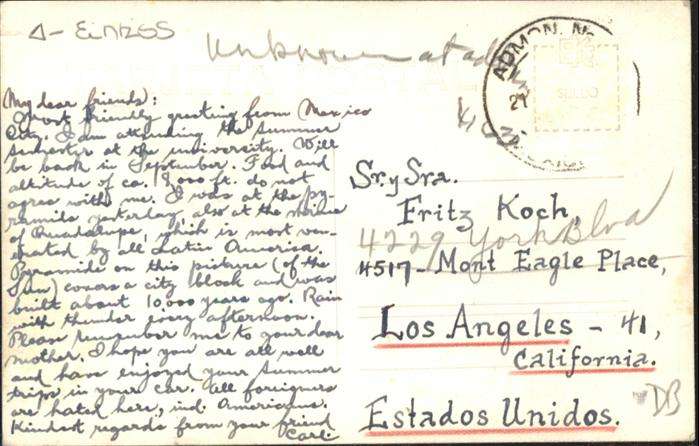 Unknown at
ADMON. No.
21
SUELDO
(My dear friends):
Most friendly greeting from Mexico
City. I am attending the summer
semester at the university. Will
be back in September. Food and
altitude of ca. 8,000 ft. do not
agree with me. I was at the py-
ramids yesterday, also at the shrine
of Guadalupe, which is most ven-
erated by all Latin America.
Pyramide on this picture (of the
Sun) covers a city block and was
built about 10,000 years ago. Rain
with thunder every afternoon.
Please remember me to your dear
mother. I hope you are all well
and have enjoyed your summer
trips in your car. All foreigners
are hated here, incl. Americans.
Kindest regards from your friend
Carl.
Sr. y Sra.
Fritz Koch,
4229 York Blvd
4517- Mont Eagle Place,
Los Angeles - 41,
California.
Estados Unidos.
DB